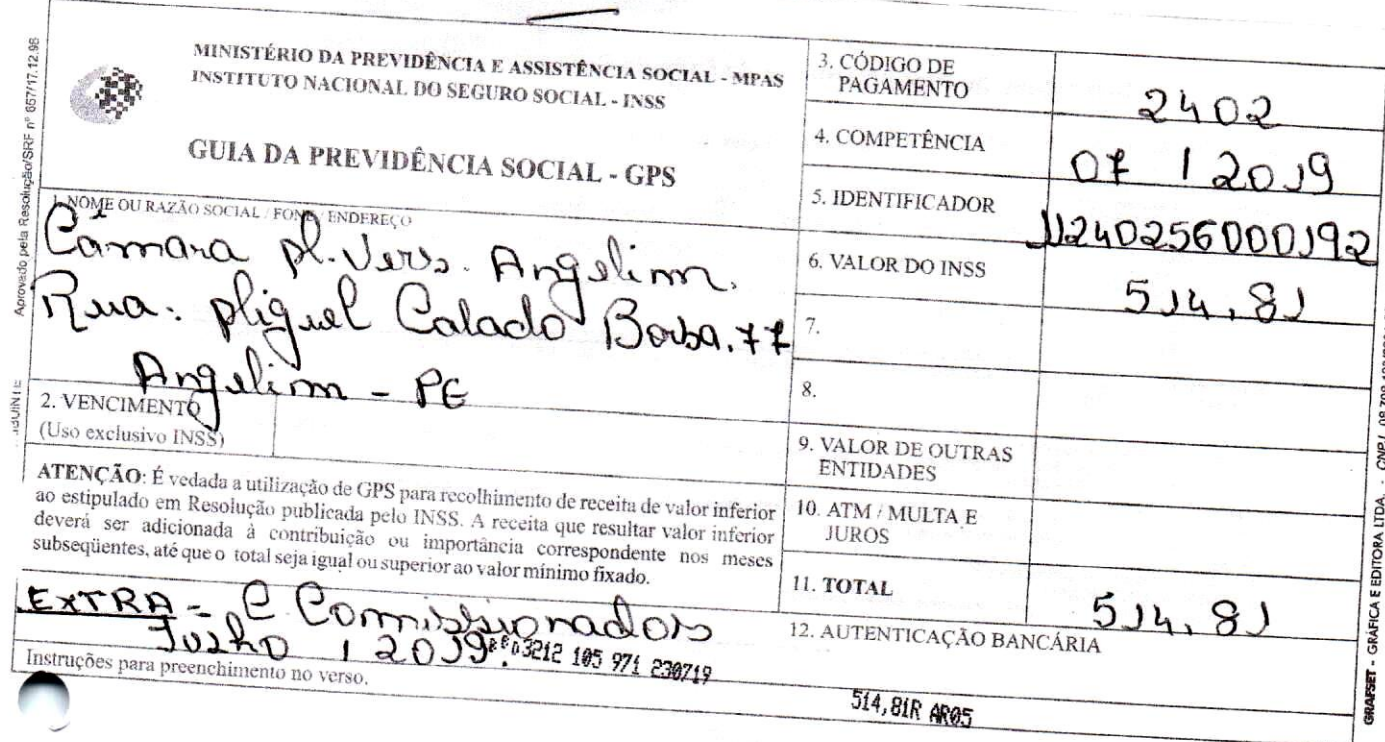 Aprovado pela Resolução/SRF nº 657/17.12.98
MINISTÉRIO DA PREVIDÊNCIA E ASSISTÊNCIA SOCIAL - MPAS
INSTITUTO NACIONAL DO SEGURO SOCIAL - INSS
GUIA DA PREVIDÊNCIA SOCIAL - GPS
1. NOME OU RAZÃO SOCIAL / FONE / ENDEREÇO
Câmara M. Vers. Angelim.
Rua: Miguel Calado Borba. 77
Angelim - PE
2. VENCIMENTO
(Uso exclusivo INSS)
ATENÇÃO: É vedada a utilização de GPS para recolhimento de receita de valor inferior
ao estipulado em Resolução publicada pelo INSS. A receita que resultar valor inferior
deverá ser adicionada à contribuição ou importância correspondente nos meses
subseqüentes, até que o total seja igual ou superior ao valor mínimo fixado.
EXTRA - C Comissionados
Julho / 2019.
3212 105 971 230719
Instruções para preenchimento no verso.
3. CÓDIGO DE
PAGAMENTO
2402
4. COMPETÊNCIA
07 / 2019
5. IDENTIFICADOR
11240256000192
6. VALOR DO INSS
514,81
7.
8.
9. VALOR DE OUTRAS
ENTIDADES
10. ATM / MULTA E
JUROS
11. TOTAL
514,81
12. AUTENTICAÇÃO BANCÁRIA
514,81R AR05
GRAFSET - GRÁFICA E EDITORA LTDA. - CNPJ